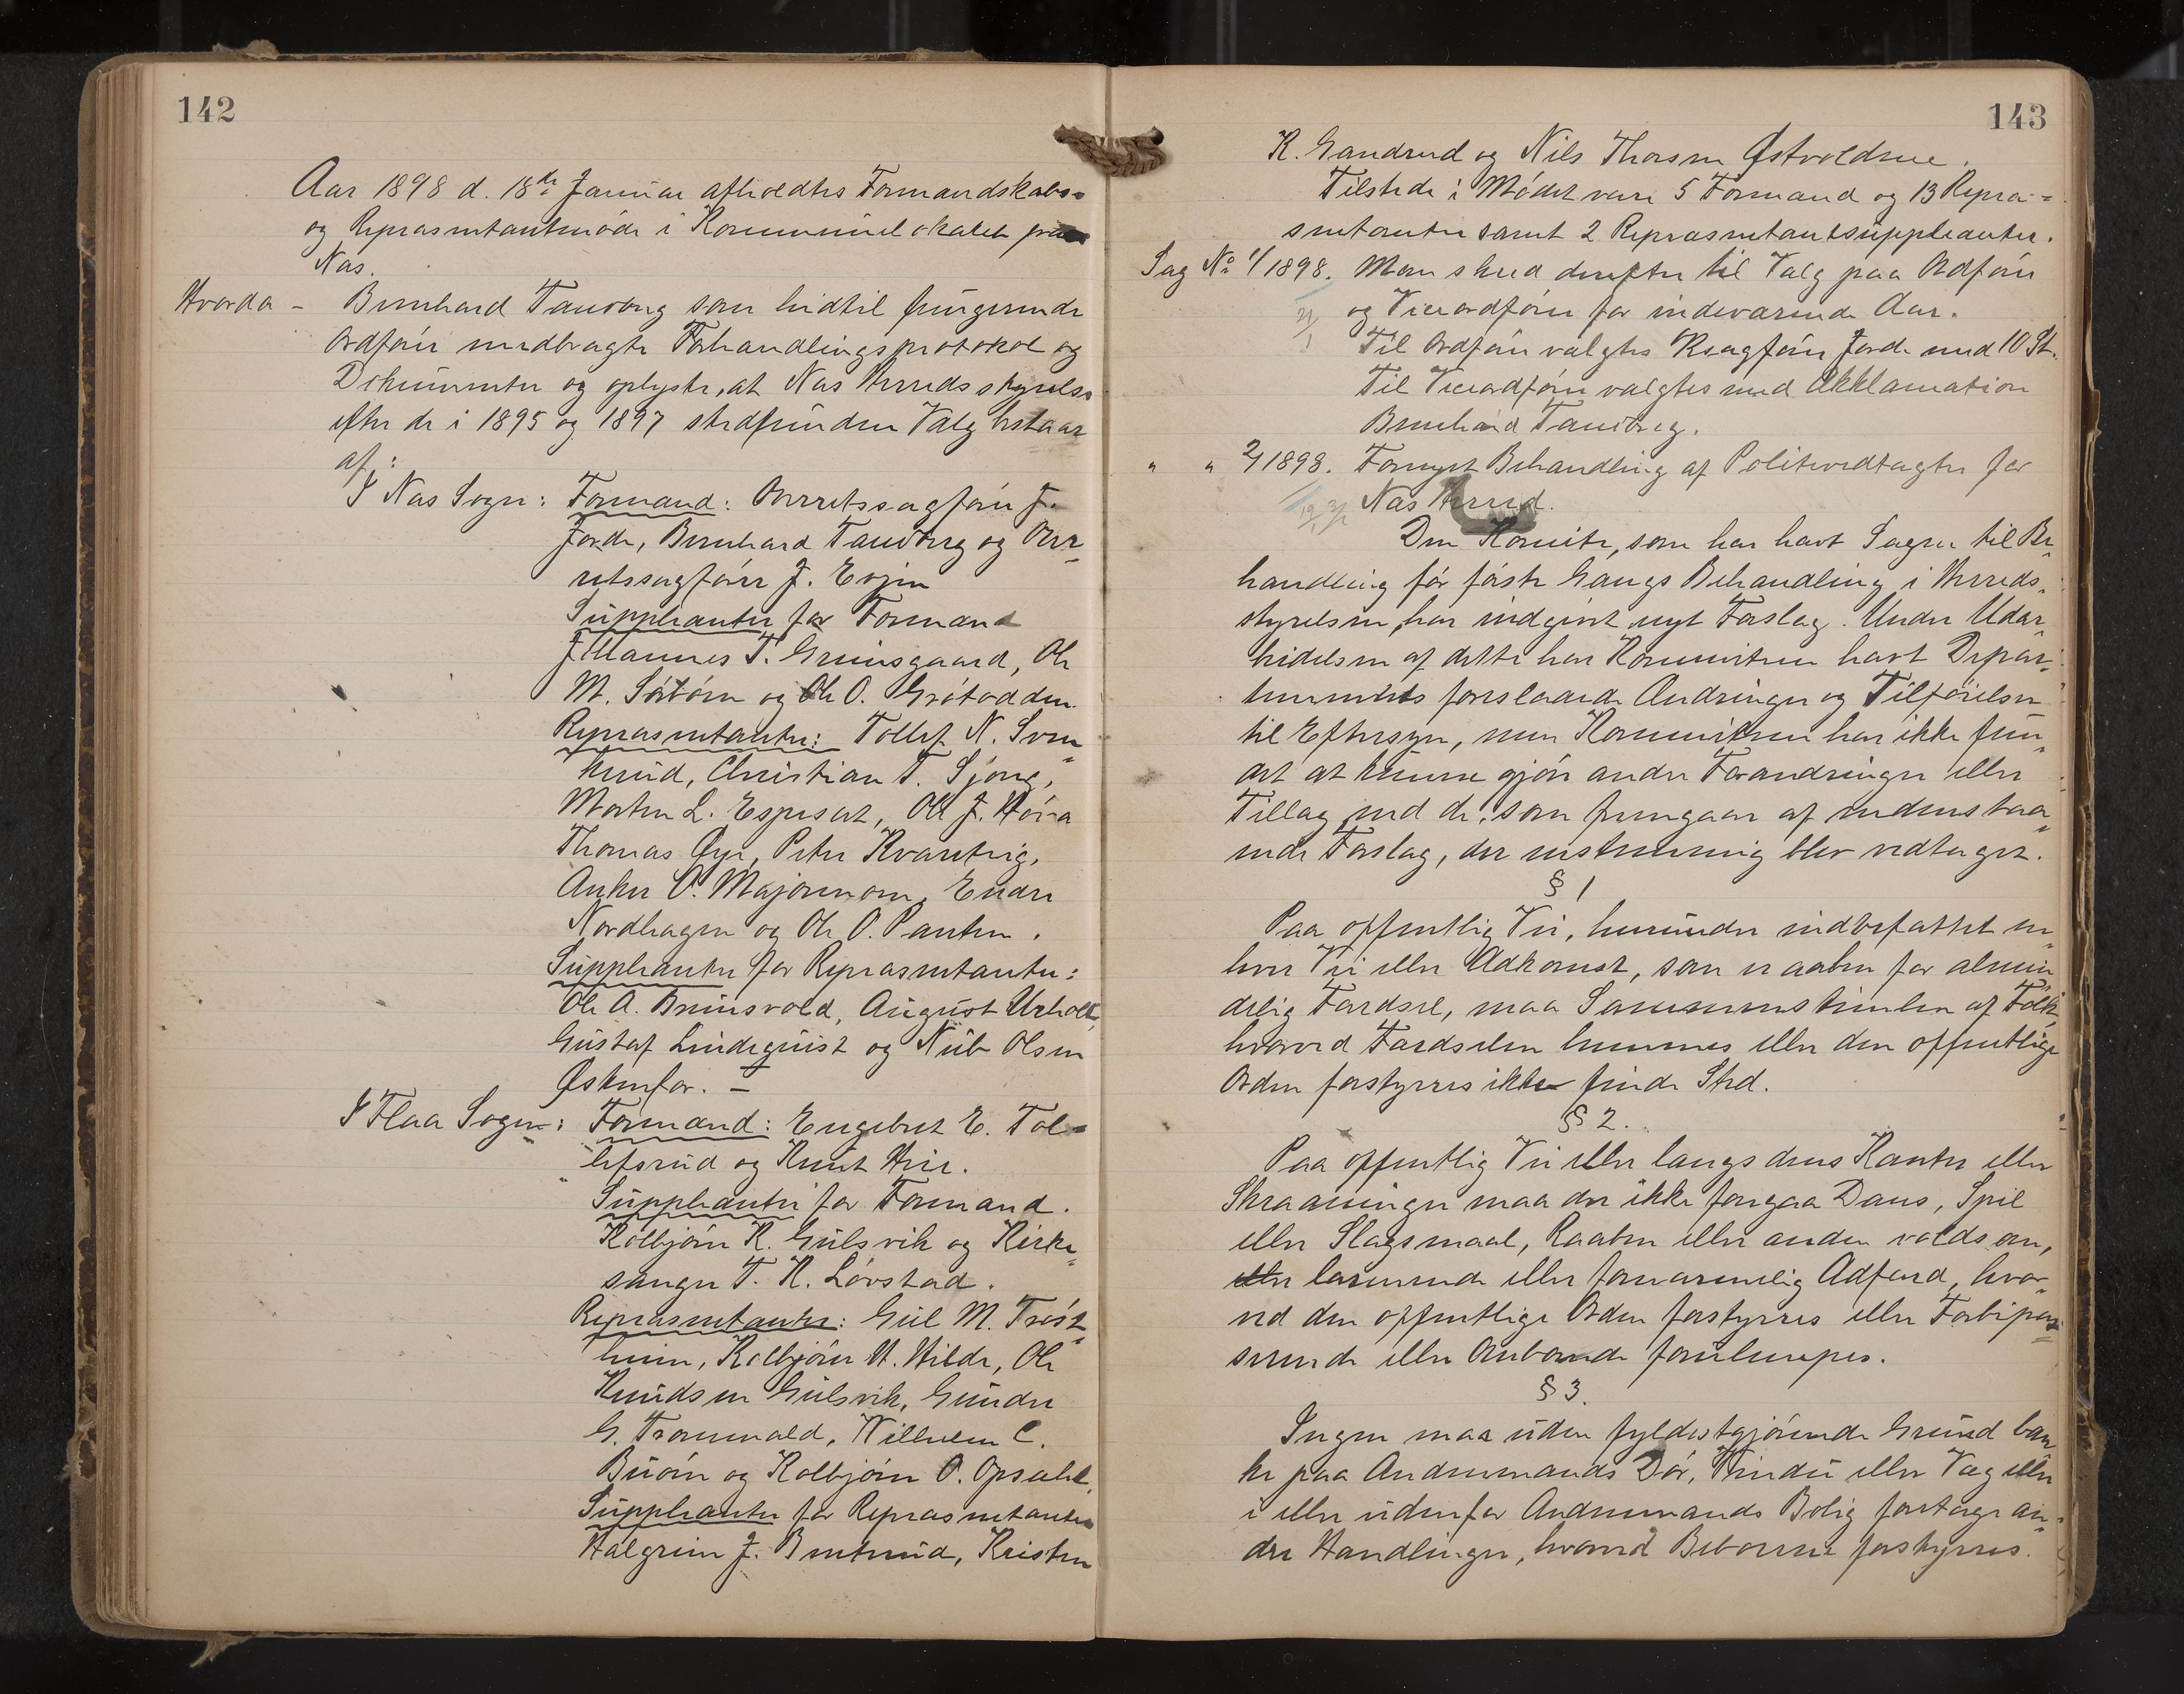 142
Aar 1898 d. 18de Januar afholdtes Formandskabs-
og Repræsentantmøde i Kommunelokalet paa
Næs.
Hvorda – Bernhard Tandberg som hidtil fungerende
Ordfører medbragte Forhandlingsprotokol og
Dokumenter og oplyste, at Næs Herredsstyrelse
efter de i 1895 og 1897 stedfundne Valg bestaar
af:
I Næs Sogn: Formænd: Overretssagfører J.
Jorde, Bernhard Tandberg og Over-
retssagfører J. Evjen
Suppleanter for Formænd
Johannes T. Grimsgaard, Ole
M. Sørbøen og Ole O. Grøtødden
Repræsentanter: Tollef N. Sven-
kerud, Christian T. Sjong,
Morten L. Espeset, Ole J. Høva
Thomas Øye, Peter Kvarteig,
Anker O. Majormoen, Endre
Nordhagen og Ole O. Panten.
Suppleanter for Repræsentanter:
Ole A. Breinsvold, August Utholt,
Gustaf Lindequist og Nils Olsen
Østenfor. –
I Flaa Sogn: Formænd: Engebret E. Tol-
lefsrud og Knut Heie.
Suppleanter for Formænd.
Kolbjørn K. Gulsvik og Kirke-
sanger T. K. Løvstad.
Repræsentanter: Gul M. Trøst-
heim, Kolbjørn H. Hilde, Ole
Knudsen Gulsvik, Gunder
G. Trommald, Wilhelm C.
Buøen og Kolbjørn O. Opsahl.
Suppleanter for Repræsentanter
Halgrim J. Benterud, Kristen
143
K. Gandrud og Nils Thorsen Østvoldeie.
Tilstede i Mødet vare 5 Formænd og 13 Repræ-
sentanter samt 2 Repræsentantsuppleanter.
Sag No 1/1898. Man skred derefter til Valg paa Ordfører
og Viceordfører for indeværende Aar.
Til Ordfører valgtes Rsagfører Jorde med 10 St.
Til Viceordfører valgtes med Akklamation
Bernhard Tandberg.
" " 2/1898. Fornyet Behandling af Politivedtægter for
Næs Herred.
Den Komite, som har havt Sagen til Be-
handling før første Gangs Behandling i Herreds-
styrelsen, har indgivet nyt Forslag. Under Udar-
beidelsen af dette har Kommiteen havt Depar-
tementets foreslaaede Ændringer og Tilføielser
til Eftersyn, men Kommiteen har ikke fun-
det at kunne gjøre andre Forandringer eller
Tillæg end de, som fremgaar af nedenstaa-
ende Forslag, der enstemmig blev vedtaget.
§ 1
Paa offentlig Vei, herunder indbefattet en-
hver Vei eller Adkomst, som er aaben for almin-
delig Færdsel, maa Sammenstimlen af Folk,
hvorved Færdselen hemmes eller den offentlige
Orden forstyrres ikke finde Sted.
§ 2.
Paa offentlig Vei eller langs dens Kanter eller
Skraaninger maa der ikke foregaa Dans, Spil
eller Slagsmaal, Raaben eller anden voldsom,
eller larmende eller fornærmelig Adfærd, hvor-
ved den offentlige Orden forstyrres eller Forbipas-
serende eller Omboende forulempes.
§ 3.
Ingen maa uden fyldestgjørende Grund ban-
ke paa Andenmands Dør, Vindu eller Væg eller
i eller udenfor Andenmands Bolig foretage an-
dre Handlinger, hvorved Beboerne forstyrres.